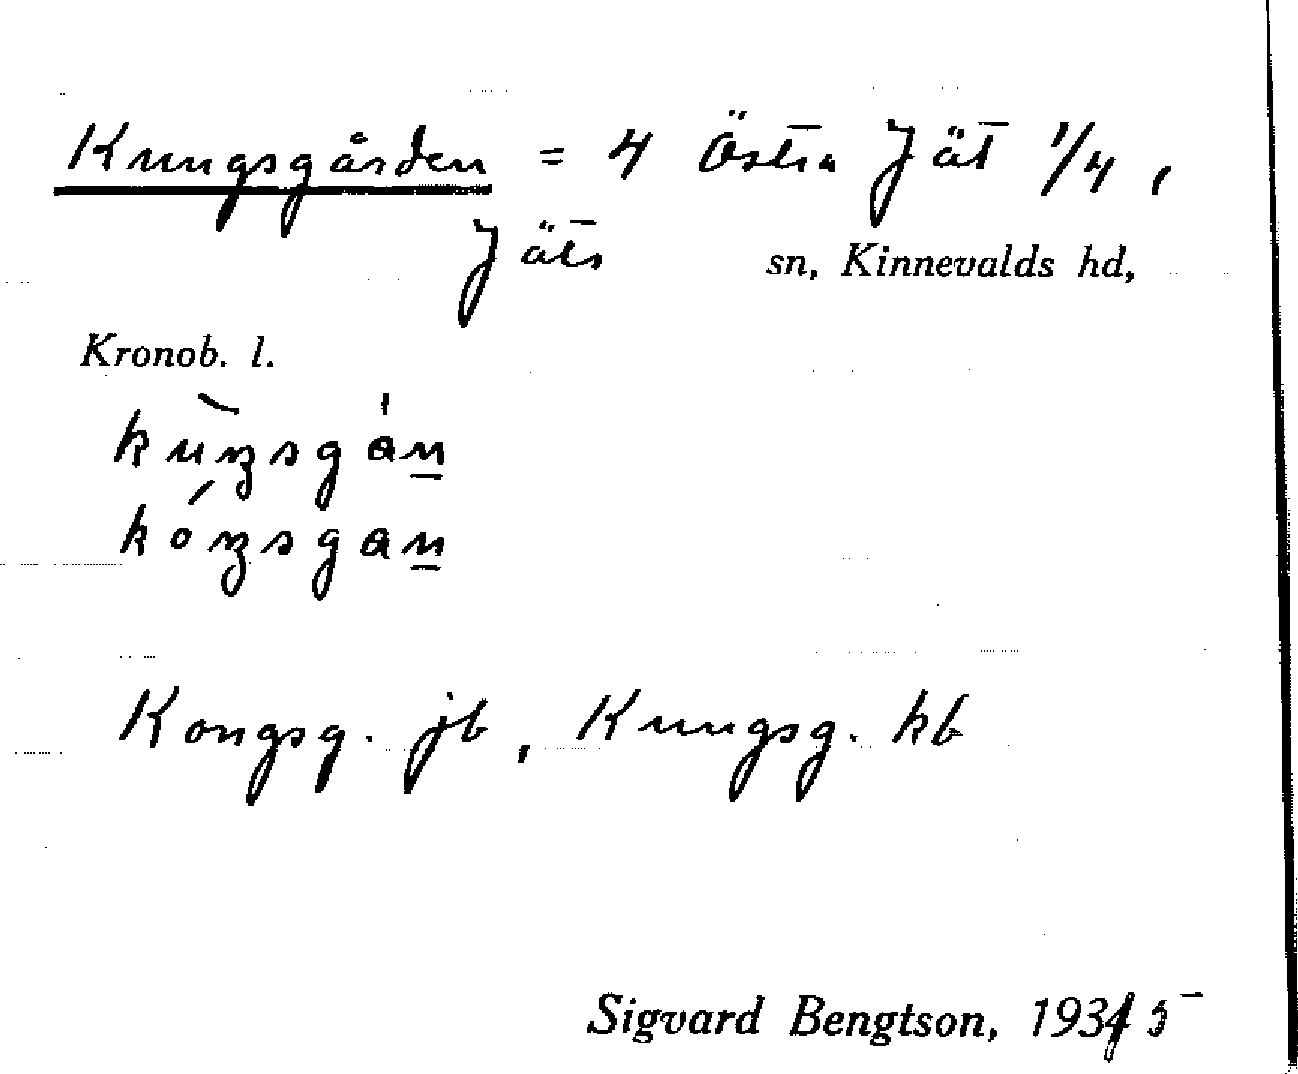 Kungsgården = 4 Östra Jät 1/4,
Jäts sn, Kinnevalds hd,
Kronob. l.
kùŋsgán̲
kóŋsgan̲
Kongsg. jb, Kungsg. kb
Sigvard Bengtson, 1935